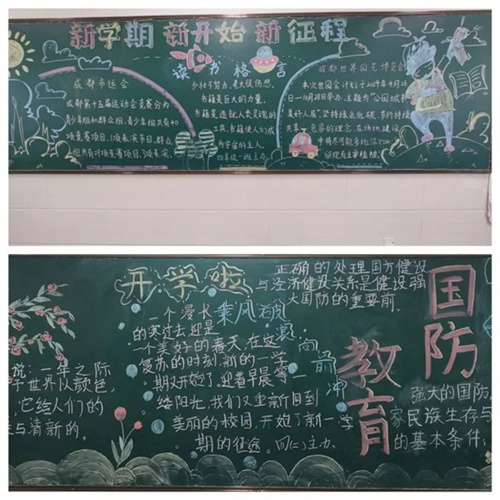 新学期 新开始 新征程
成都市运会
成都第十五届运动会竞赛分为
青少年组和群众组,青少年组共有40
读书格言
少壮不努力,老大徒伤悲。
书籍是巨大的力量。
书籍是造就人类灵魂的
工具。书籍使人们成
为宇宙的主人。
成都世界园艺博览会
本次世园会计划于2024年4月26
开学啦
一个漫长
的寒过去迎是
一个美好的春天,在这
复苏的时刻,新的一学
期又开始了,迎着早晨第一
缕阳光,我们又重新回到
美丽的校园,开始了新一学
期的征途。
乘风破浪向前冲
正确的处理国方健设
与泾济健设关系是健设强
大国防的重要前.
国防
教育
强大的国防,
家民族生存与
的基本条件;
说:一年之际
予世界以颜色,
它给人们的
与清新的.